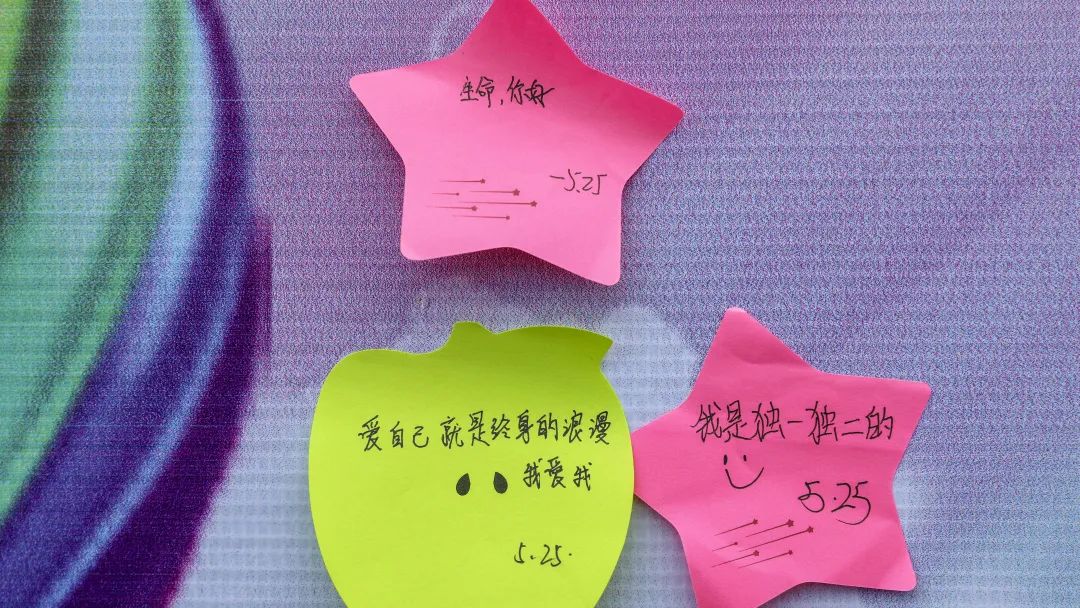 生命，你好
-5.25
爱自己就是终身的浪漫
我爱我
5.25.
我是独一独二的
5.25